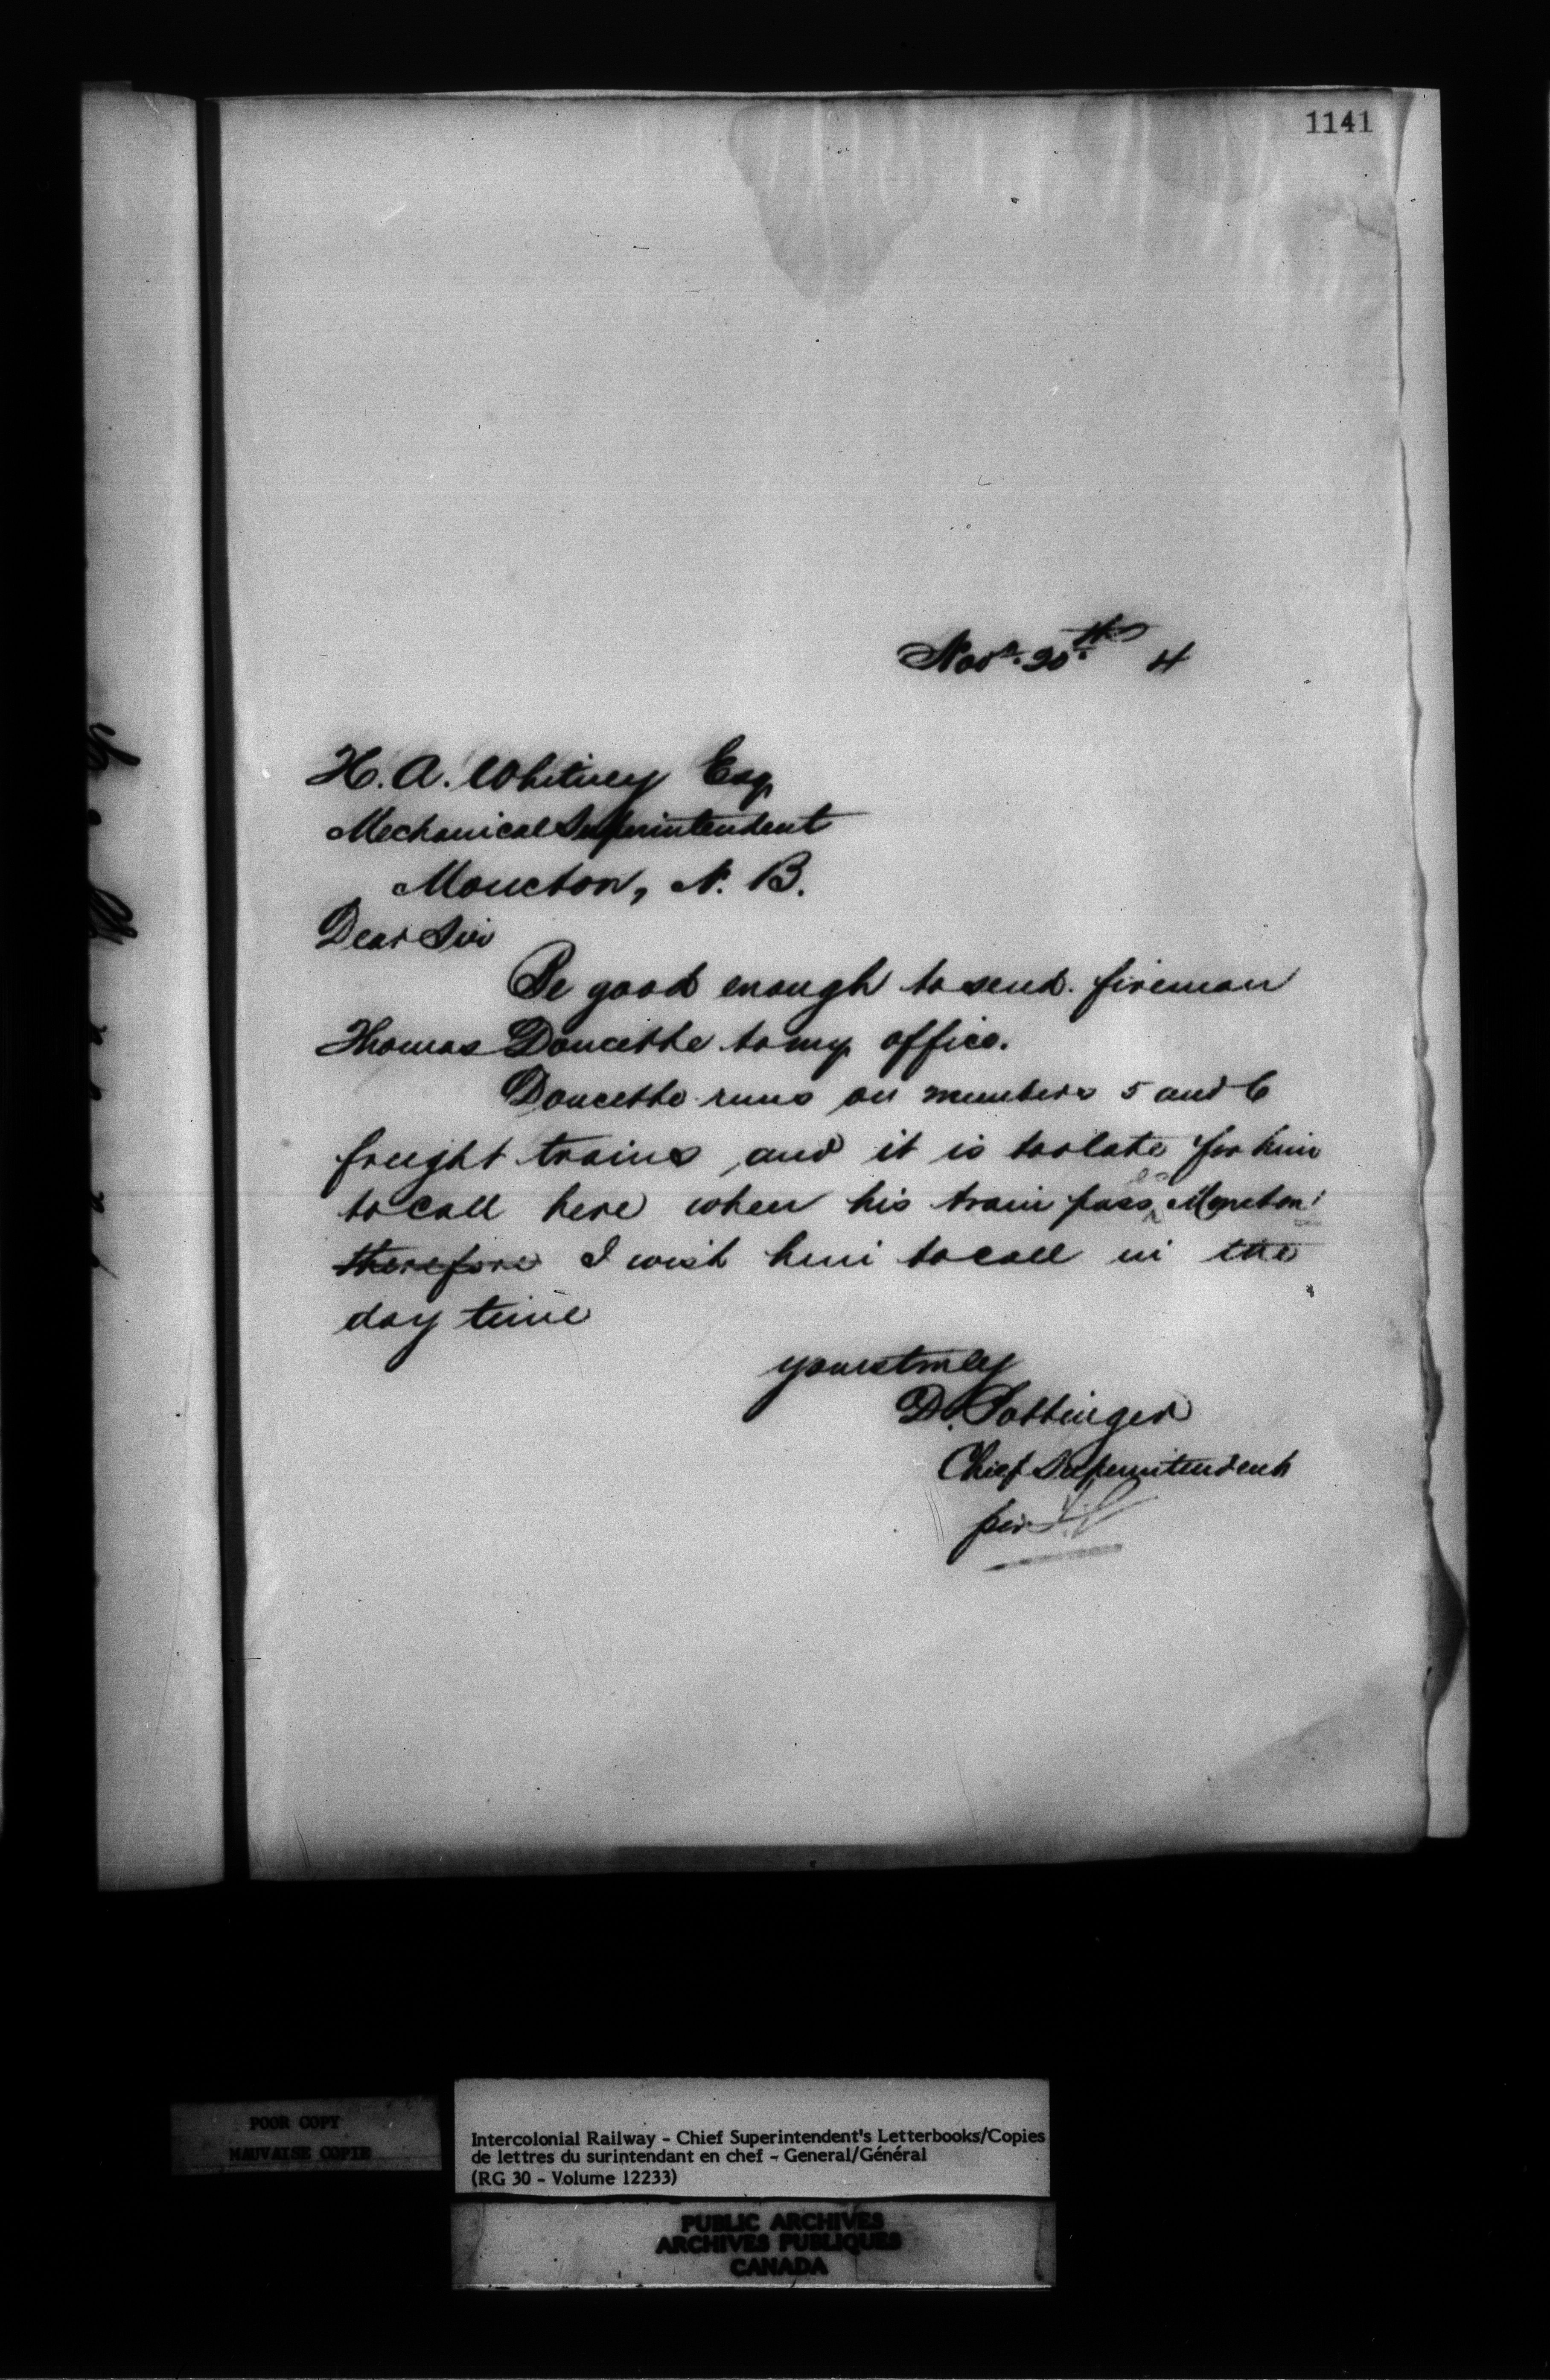 1141
Novr. 20th 4
H. A. Whitney Esq
Mechanical Superintendent
Moncton, N. B.
Dear Sir
Be good enough to send fireman
Thomas Doucette to my office.
Doucette runs on numbers 5 and 6
freight trains, and it is too late for him
to call here when his train passes Moncton
therefore I wish him to call in the
day time
yours truly
D. Pottinger
Chief Superintendent
per
POOR COPY
MAUVAISE COPIE
Intercolonial Railway - Chief Superintendent's Letterbooks/Copies
de lettres du surintendant en chef - General/Général
(RG 30 - Volume 12233)
PUBLIC ARCHIVES
ARCHIVES PUBLIQUES
CANADA